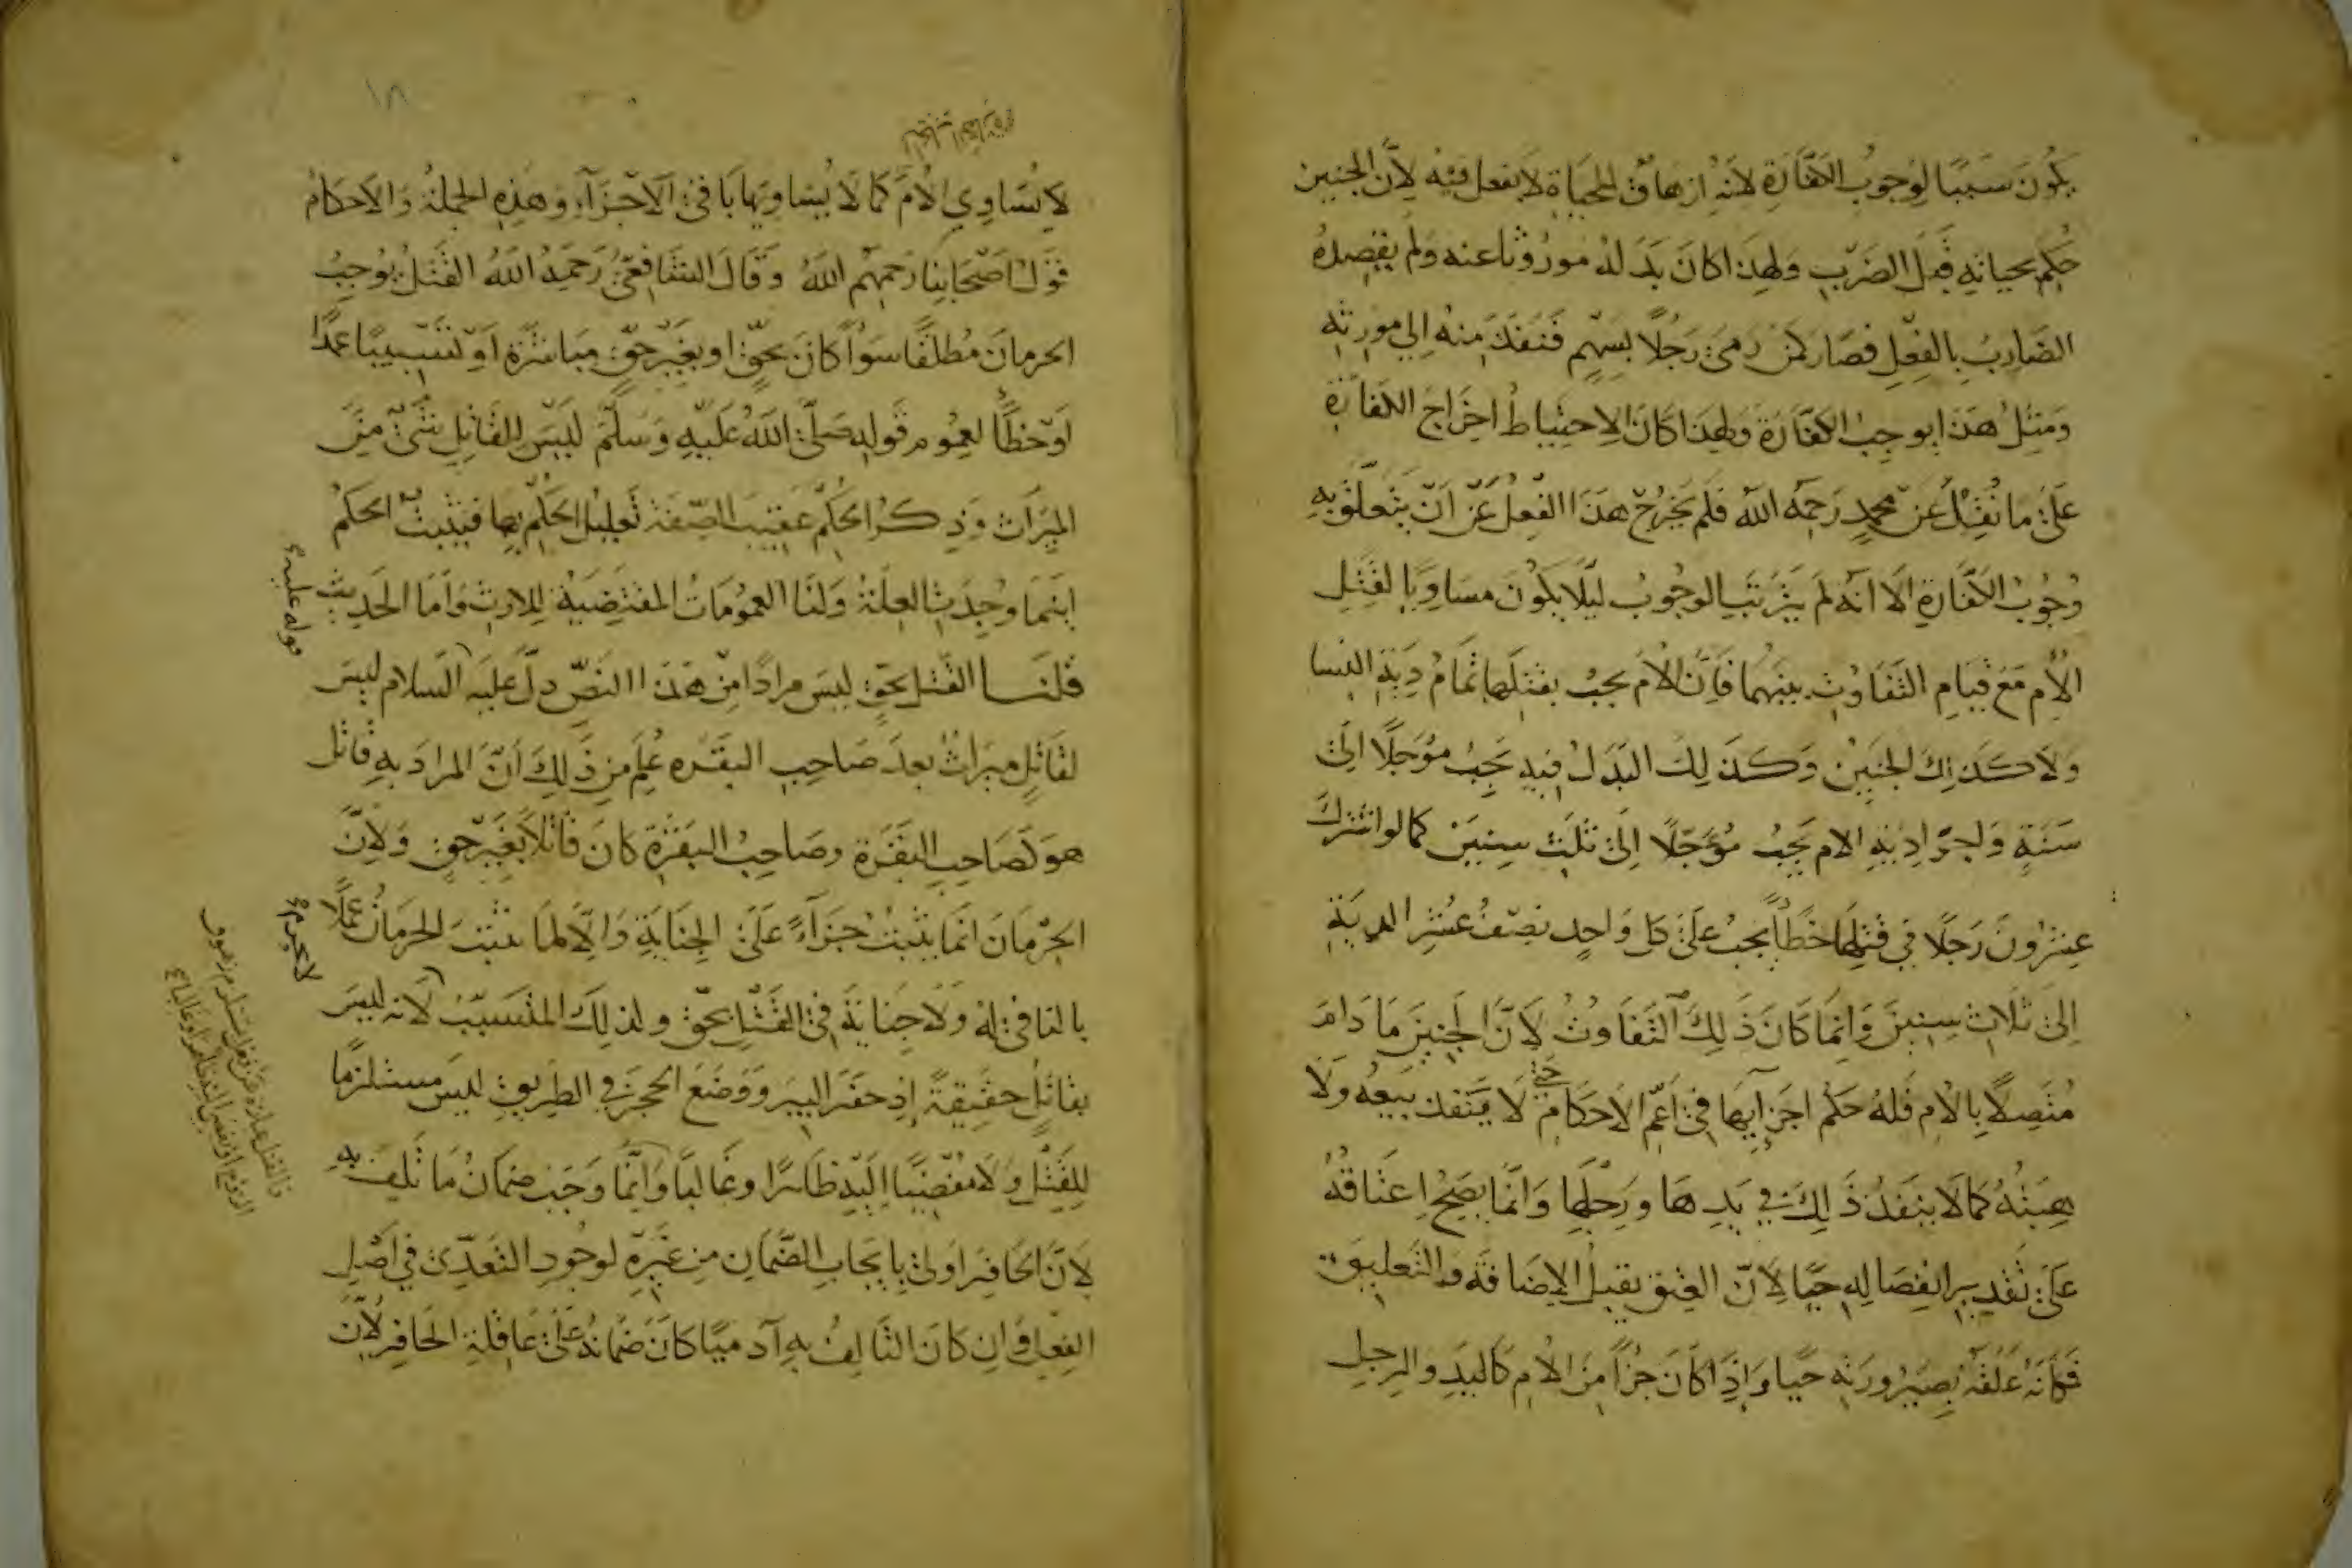 يكون سببا لوجوب الكفارة لانه ازهاق للحياة لا بفعل فيه لان الجنين
حكم بحياته قبل الضرب ولهذا كان بدله موروثا عنه ولم يقصده
الضارب بالفعل فصار كمن رمى رجلا بسهم فنفذ منه الى مورثه
ومثل هذا يوجب الكفارة ولهذا كان الاحتياط اخراج الكفارة
على ما نقل عن محمد رحمه الله فلم يخرج هذا الفعل عن ان يتعلق به
وجوب الكفارة الا انه لم يترتب الوجوب ليلا يكون مساويا لقتل
الام مع قيام التفاوت بينهما فان الام يجب بقتلها تمام دية النسا
ولا كذلك الجنين وكذلك البدل فيه يجب مؤجلا الى
سنة ولجزا دية الام يجب مؤجلا الى ثلث سنين كما لو اشترك
عشرون رجلا في قتلها خطأ يجب على كل واحد نصف عشر الدية
الى ثلاث سنين وانما كان ذلك التفاوت لان الجنين ما دام
متصلا بالام فله حكم اجزايها في اعم الاحكام حتى لا ينفذ بيعه ولا
هبته كما لا ينفذ ذلك في يدها ورجلها وانما يصح اعتاقه
على تقدير انفصاله حيا لان العتق يقبل الاضافة والتعليق
فكانه علقه بصيرورته حيا واذا كان جزأ من الام كاليد والرجل
١٨
لا يساوي الام كما لا يساويها با في الاجزآء وهذه الجملة والاحكام
قول اصحابنا رحمهم الله وقال الشافعي رحمه الله القتل يوجب
الحرمان مطلقا سوا كان بحق او بغير حق مباشرة او تسبيبا عمدا
او خطأ لعموم قوله صلى الله عليه وسلم ليس للقاتل شئ من
الميراث وذكر الحكم عقيب الصفة تعليل الحكم بها فيثبت الحكم
اينما وجدت العلة ولنا العمومات المقتضية للارث واما الحديث
قلنا القتل بحق ليس مرادا من هذا النص دل عليه السلام ليس
قوله عليه
لقاتل ميراث بعد صاحب البقره علم من ذلك ان المراد به قاتل
هو كصاحب البقرة وصاحب البقرة كان قاتلا بغير حق ولان
الحرمان انما يثبت جزآء على الجناية والا لما ثبت الحرمان عملا
لا يحرم
بالنافي له ولا جناية في القتل بحق ولذلك المتسبب لانه ليس
بقاتل حقيقة اذ حفر البير ووضع الحجر في الطريق ليس مستلزما
للقتل ولا مفضيا اليه ظاهرا وغالبا وانما وجب ضمان ما تلف به
لان الحافر اولى بايجاب الضمان من غيره لوجود التعدي في اصل
الفعل وان كان التالف به آدميا كان ضمانه على عاقلة الحافر لان